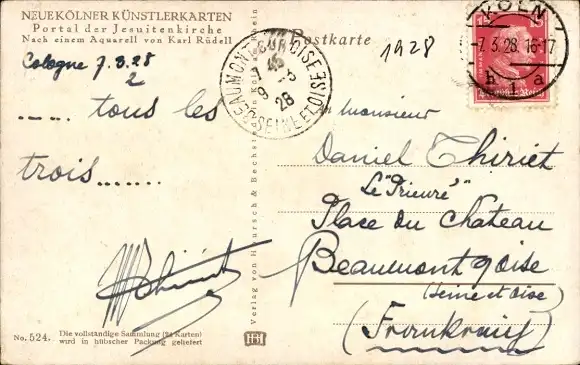 NEUE KÖLNER KÜNSTLERKARTEN
Portal der Jesuitenkirche
Nach einem Aquarell von Karl Rüdell
Cologne 7.3.28
2
..... tous les
trois .......
No. 524. Die vollständige Sammlung (24 Karten)
wird in hübscher Packung geliefert
Verlag von Hoursch & Bechstedt in Köln am Rhein
Postkarte
1928
BEAUMONT SUR OISE
SEINE-ET-OISE
28
KÖLN
-7.3.28 16-17
h 1 a
Monsieur
Daniel Thiriet
Le "Prieuré"
Place du Chateau
Beaumont s/oise
(Seine et oise)
(Frankreich)